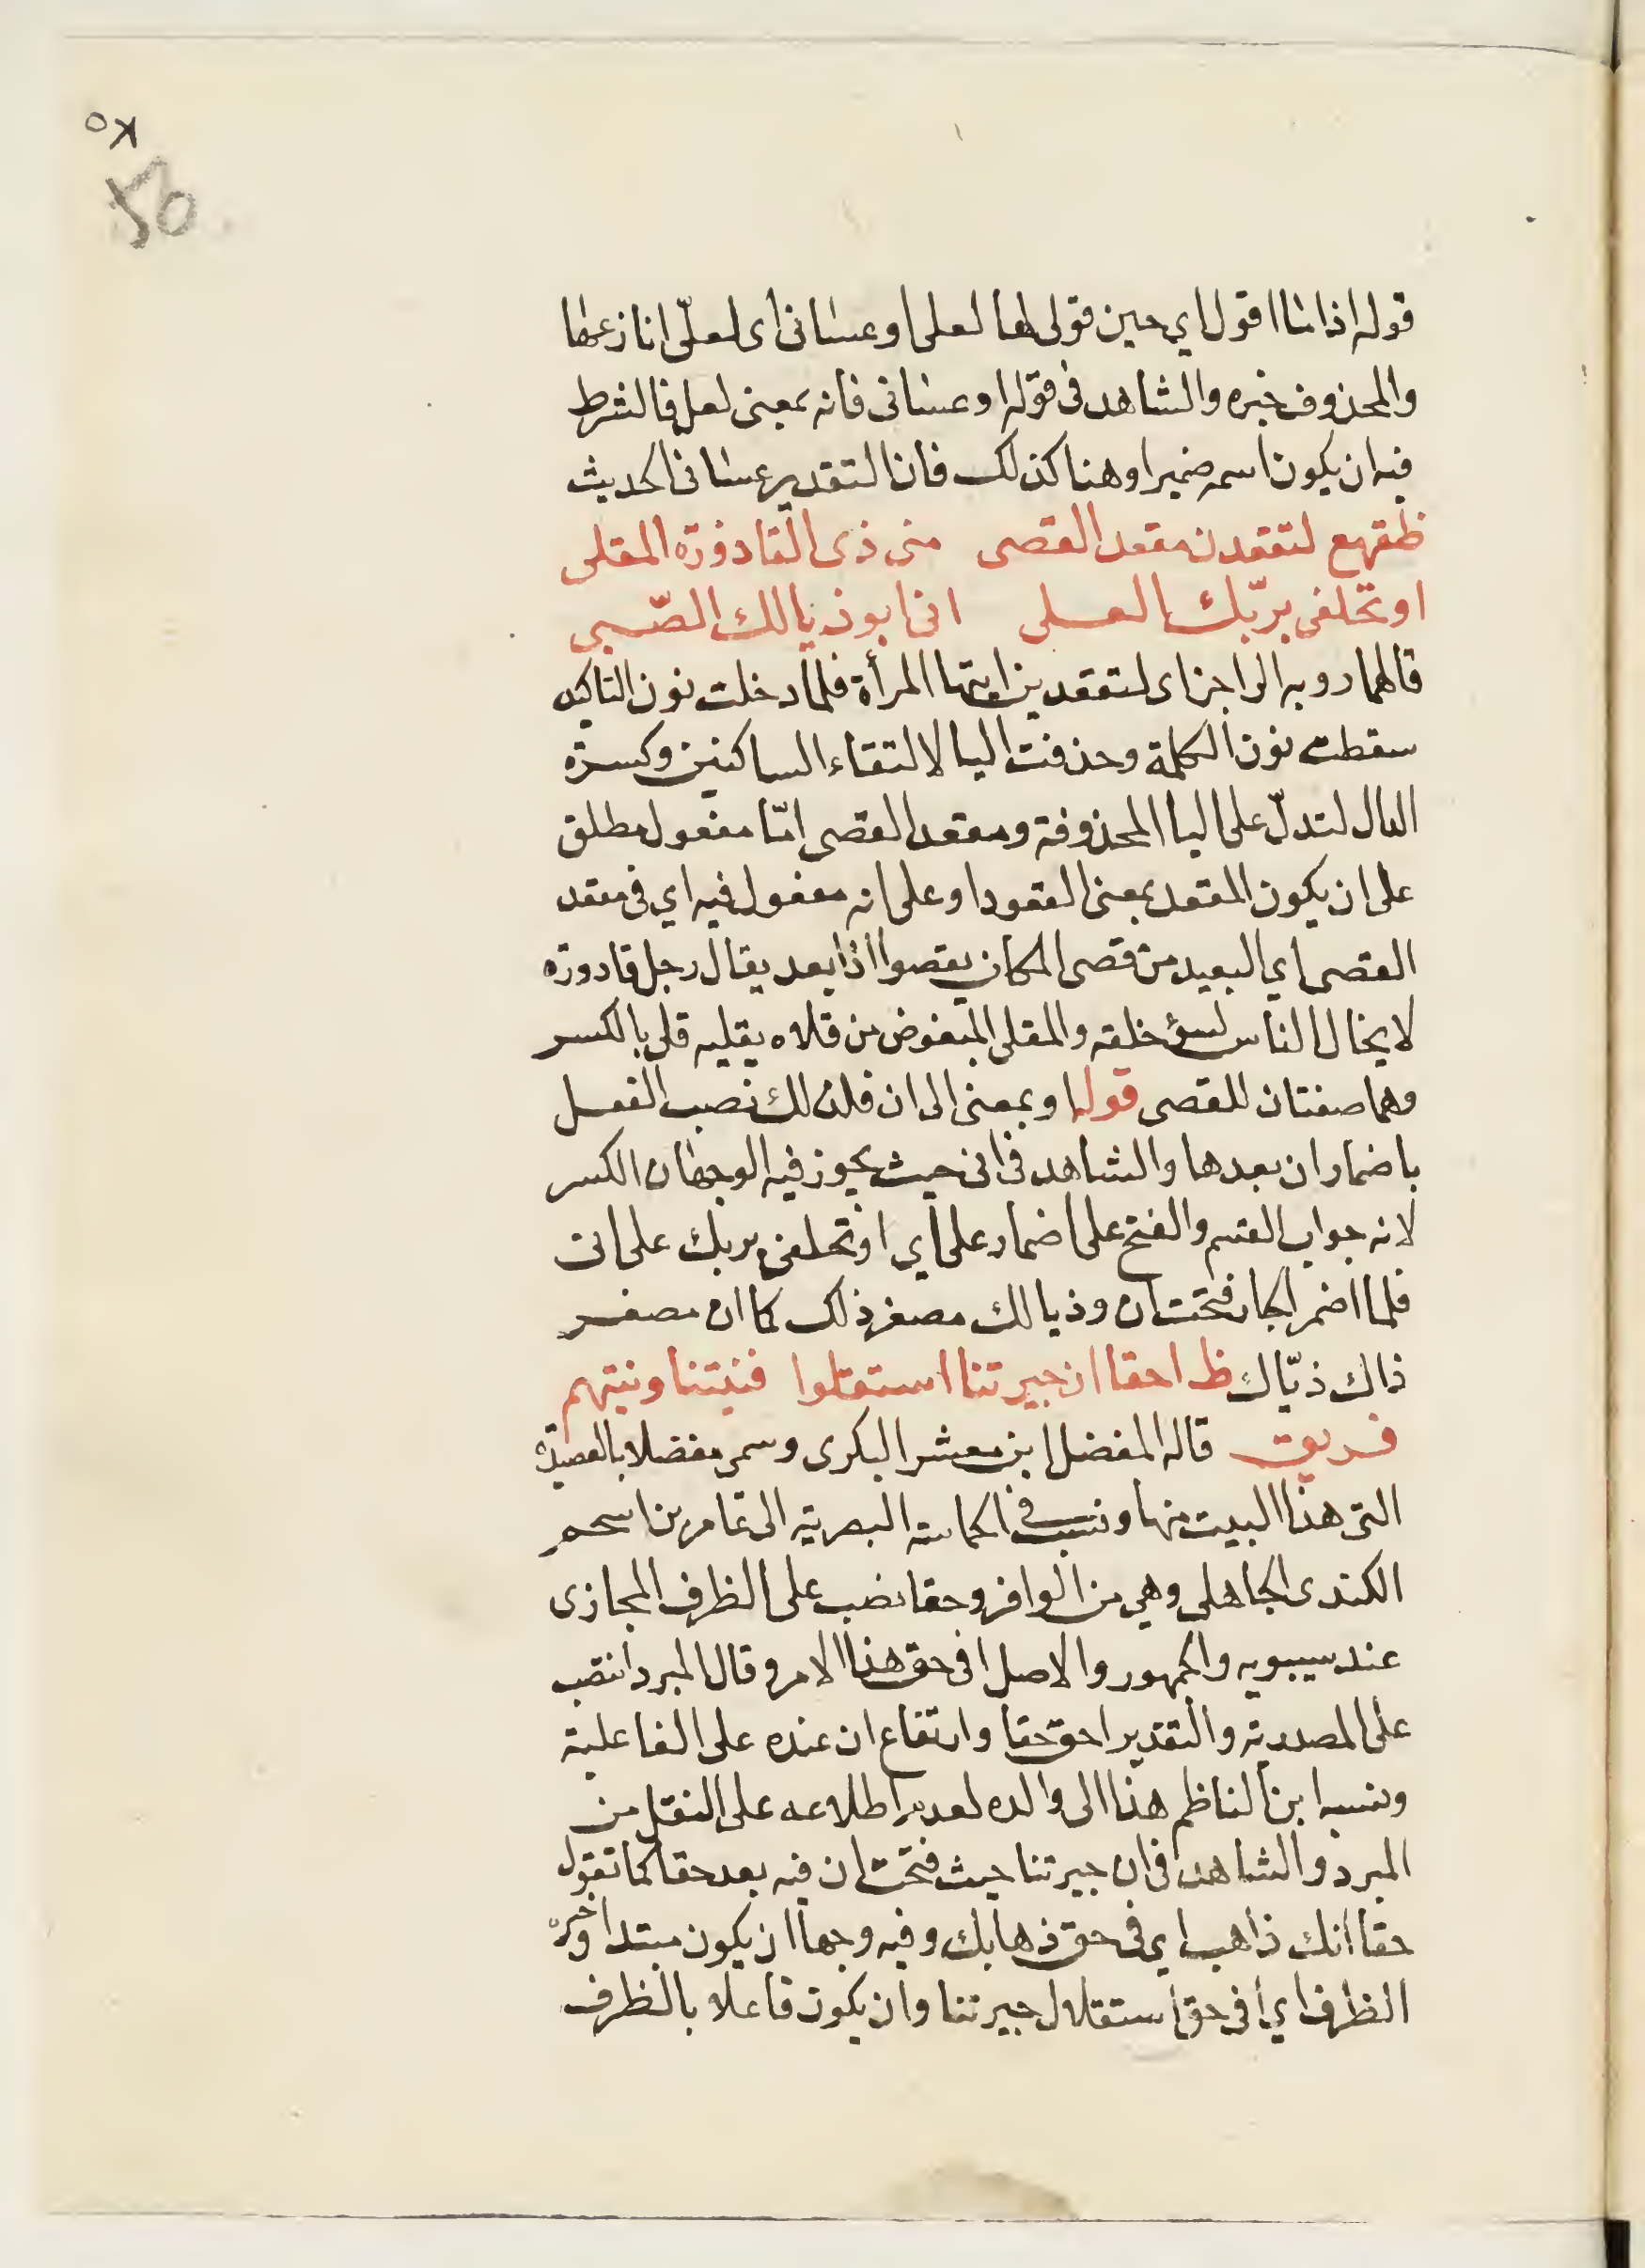 ٥٨
56
قوله اذا ما اقول اي حين قولى لها لعلى او عسانى اى لعلّى انازعها
والمحذوف خبره والشاهد فى قوله او عسانى فانه بمعنى لعل فالشرط
فيه ان يكون اسمه ضميرا وهنا كذلك فان التقدير عسانى الحديث
ظقهع لتقعدن مقعد القصى منى ذى القاذورة المقلى
او تحلفى بربّك العلى انى ابو ذيالك الصّبى
قالهما روبه الراجز اى لتقعدين ايتها المرأة فلما دخلت نون التاكيد
سقطت نون الكلمة وحذفت اليا لالتقاء الساكنين وكسرة
الدال لتدلّ على اليا المحذوفة ومقعد القصى امّا مفعول مطلق
على ان يكون المقعد بمعنى القعود او على انه مفعول فيه اي فى مقعد
القصى اي البعيد من قصى المكان يقصوا اذا بعد يقال رجل قادورة
لا يخال الناس لسؤ خلقه والمقلى المبغوض من قلاه يقليه قلى بالكسر
وهما صفتان للقصى قوله او بمعنى الى ان فلذلك نصب الفعل
باضمار ان بعدها والشاهد فى انى حيث يجوز فيه الوجهان الكسر
لانه جواب القسم والفتح على اضمار على اي او تحلفى بربك على انى
فلما اضمر الجار فتحت ان وذيالك مصغر ذلك كما ان مصغر
ذاك ذيّاك ظ احقا ان جيرتنا استقلوا فنيتنا ونيتهم
فريق قاله المفضل ابن معشر البكرى وسمى مفضلا بالقصيدة
التى هذا البيت منها ونسب فى الحماسة البصرية الى عامر بن اسحم
الكندى الجاهلى وهي من الوافر وحقا نصب على الظرف المجازى
عند سيبويه والجمهور والاصل افى حق هذا الامر وقال المبرد انتصب
على المصدرية والتقدير احق حقا وارتفاع ان عنده على الفاعلية
ونسبه ابن الناظم هذا الى والده لعدم اطلاعه على النقل من
المبرد والشاهد فى ان جيرتنا حيث فتحت ان فيه بعد حقا كما تقول
حقا انك ذاهب اي فى حق ذهابك وفيه وجها ان يكون مبتدا وخبره
الظرف اي افى حق استقلال جيرتنا وان يكون فاعلا بالظرف